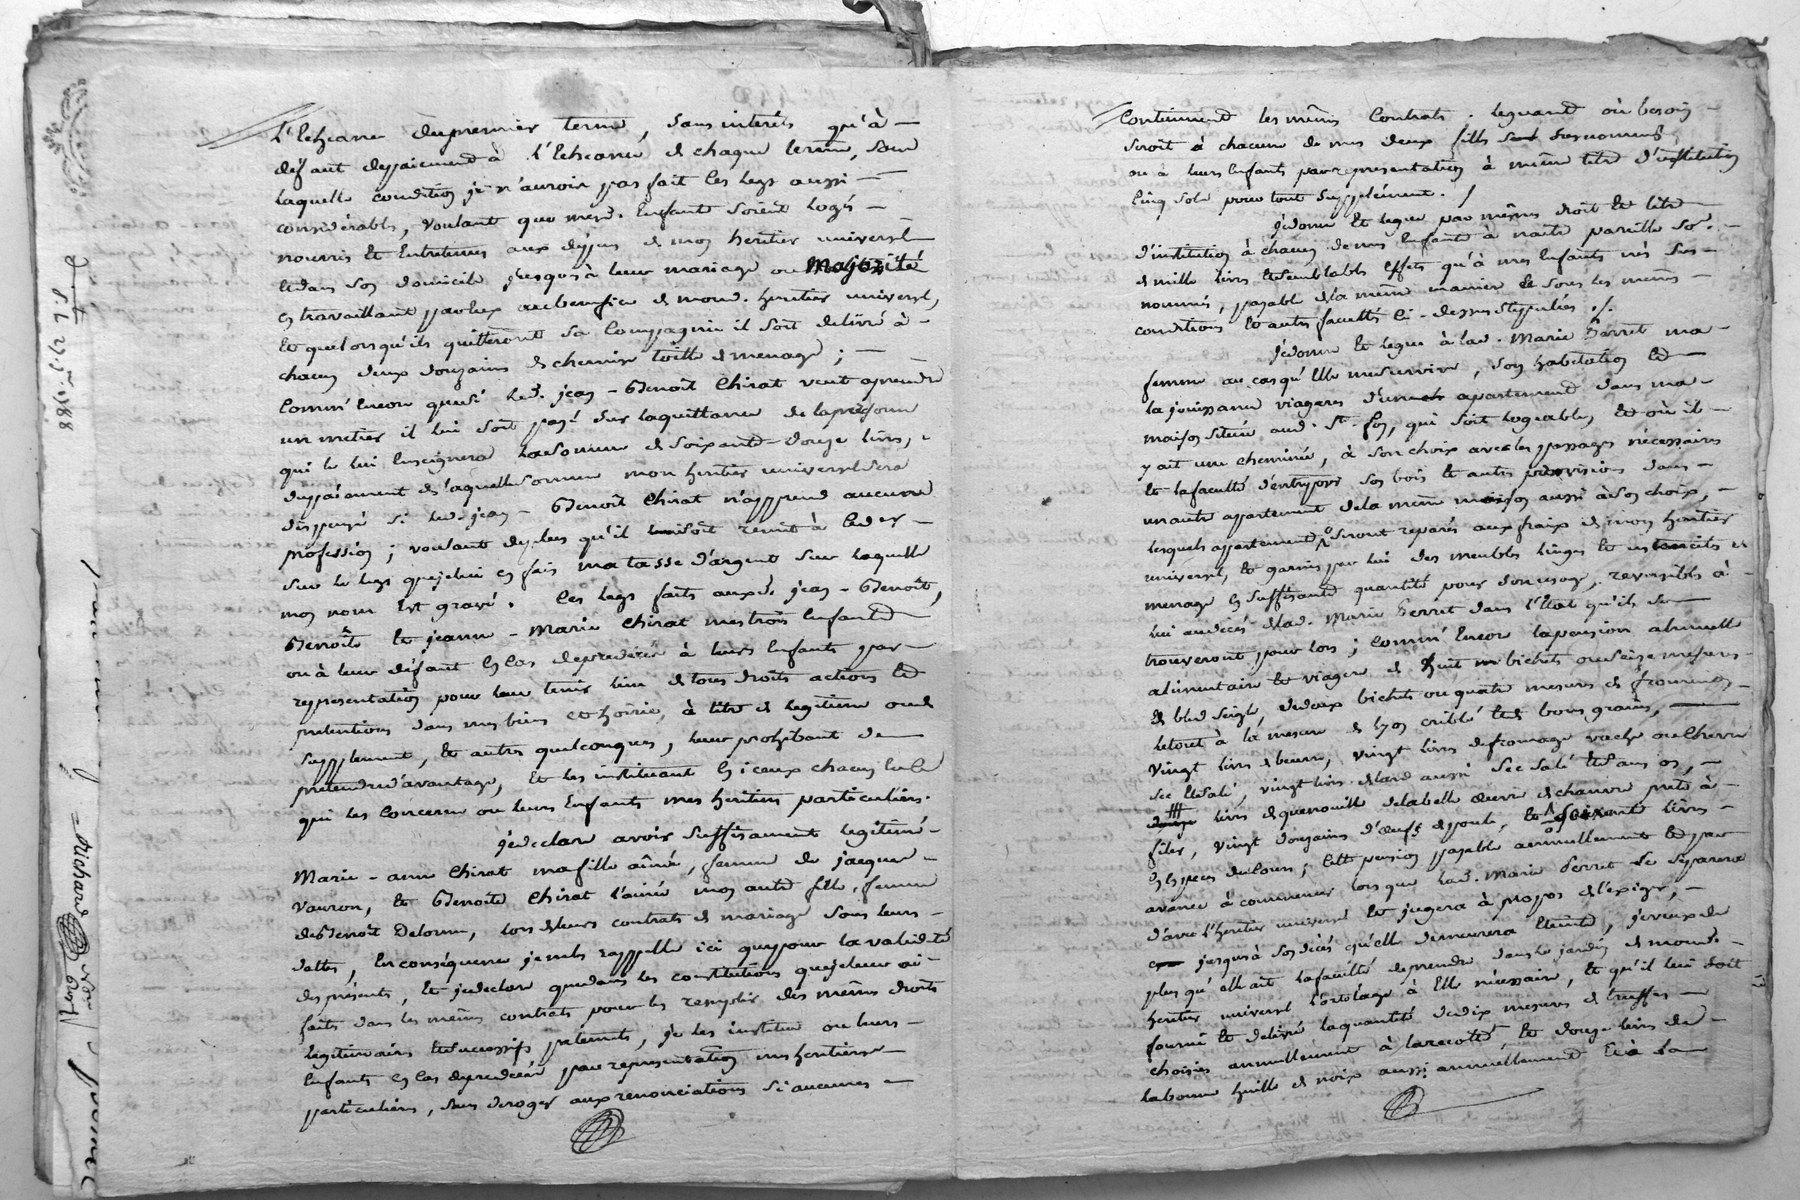 L'Echeance du premier terme, sans interêts qu'à
défaut de paiement à l'Echeance de chaque terme, sans
laquelle condition je n'aurois pas fait les legs aussi
considérables, voulant que mesd. Enfants soient logés
nourris et Entretenus aux dépens de mon heritier universel
et dans son domicile jusques à leur mariage ou majorité
en travaillant par eux au benefice de mond. heritier universel,
Et que lorsqu'ils quitteront sa Compagnie il soit delivré à
chacun deux douzaines de chemises toille de menage;
Comm' Encore que si led. jean-Benoît Chirat veut aprendre
un metier il lui soit payé sur la quittance de la personne
qui le lui Enseignera la somme de soixante douze livres,
du paiement de laquelle somme mon heritier universel sera
dispensé si led. jean-Benoît Chirat n'apprend aucune
profession; voulant de plus qu'il lui soit remit à
sur le legs que je lui en fais ma tasse d'argent sur laquelle
mon nom Est gravé. Ces legs faits auxd. jean-Benoît,
Benoîte et jeanne-Marie Chirat mes trois Enfants
ou à leur défaut En Cas de predécès à leurs Enfants par
representation pour leur tenir lieu de tous droits actions et
pretentions dans mes biens et hoirie, à titre de legitime ou de
supplement, et autres quelconques, leur prohibant de
pretendre d'avantage, Et les instituant En iceux chacun En ce
qui les Concerne ou leurs Enfants mes heritiers particuliers.
je declare avoir suffisament legitimé
Marie-anne Chirat ma fille aînée, femme de jacques
Vauron, et Benoîte Chirat l'ainée mon autre fille, femme
de Benoît Delorme, lors de leurs contrats de mariage sous leurs
dattes, En conséquence je ne les rappelle ici que pour la validité
des présents, Et je declare que dans les constitutions que je leur ai
faits dans les mêmes contrats pour les remplir des mêmes droits
legitimaires et successifs paternels, je les institue ou leurs
Enfants En Cas de predécès par representation mes heritieres
particulieres, sans deroger aux renonciations si aucunes
Contiennent les mêmes Contrats. leguant où besoin
seroit à chacune de mes deux filles susnommés
ou à leurs Enfants par representation à même titre d'institution
Cinq sols pour tout supplement.
je donne Et legue par mêmes droit et titre
d'institution à chacun de mes Enfants à naitre pareille so.e
de mille livres et semblables effets qu'à mes Enfants nés sus
nommés, payable de la même maniere et sous les mêmes
conditions Et autres facultés ci-dessus stipulées
je donne Et legue à lad. Marie Perret ma
femme au cas qu'Elle me survive, son habitation et
la jouissance viagere d'un apartement dans ma
maison située aud. St. foy, qui soit logeable, et où il
y ait une cheminée, à son choix avec les passages nécessaires
Et la faculté d'entreposer ses bois Et autres provisions dans
un autre appartement de la même maison aussi à son choix,
lesquels appartements seront reparés aux fraix de mon heritier
universel, Et garnis par lui des meubles linges Et ustenciles de
menage En suffisante quantité pour son usage, reversibles à
lui au decès de lad. Marie Perret dans l'Etat qu'ils se
trouveront pour lors; Comm' Encore la pension annuelle
alimentaire Et viagere de huit bichets ou seize mesures
de bled seigle, de deux bichets ou quatre mesures de froment
le tout à la mesure de Lyon criblé Et de bons grains,
Vingt livres de beurre, vingt livres de fromage vache ou chevre
sec Et salé, vingt livres de lard aussi sec salé Et sans os,
livres de quenouille de la belle œuvre de chanvre prete à
filer, vingt douzaines d'œufs de poule, Et soixante livres
En Especes de cours; Cette pension payable annuellement Et par
avance à commencer lorsque lad. Marie Perret se separera
d'avec l'heritier universel Et jugera à propos de l'exiger,
jusqu'à son decès qu'Elle demeurera Eteinte, je veux de
plus qu'Elle ait la faculté de prendre dans le jardin de mond.
heritier universel l'ortolage à Elle nécessaire, Et qu'il lui soit
fourni Et delivré la quantité de dix mesures de truffes
choisies annuellement à la recolte, Et douze livres de
la bonne huille de noix aussi annuellement Et à la